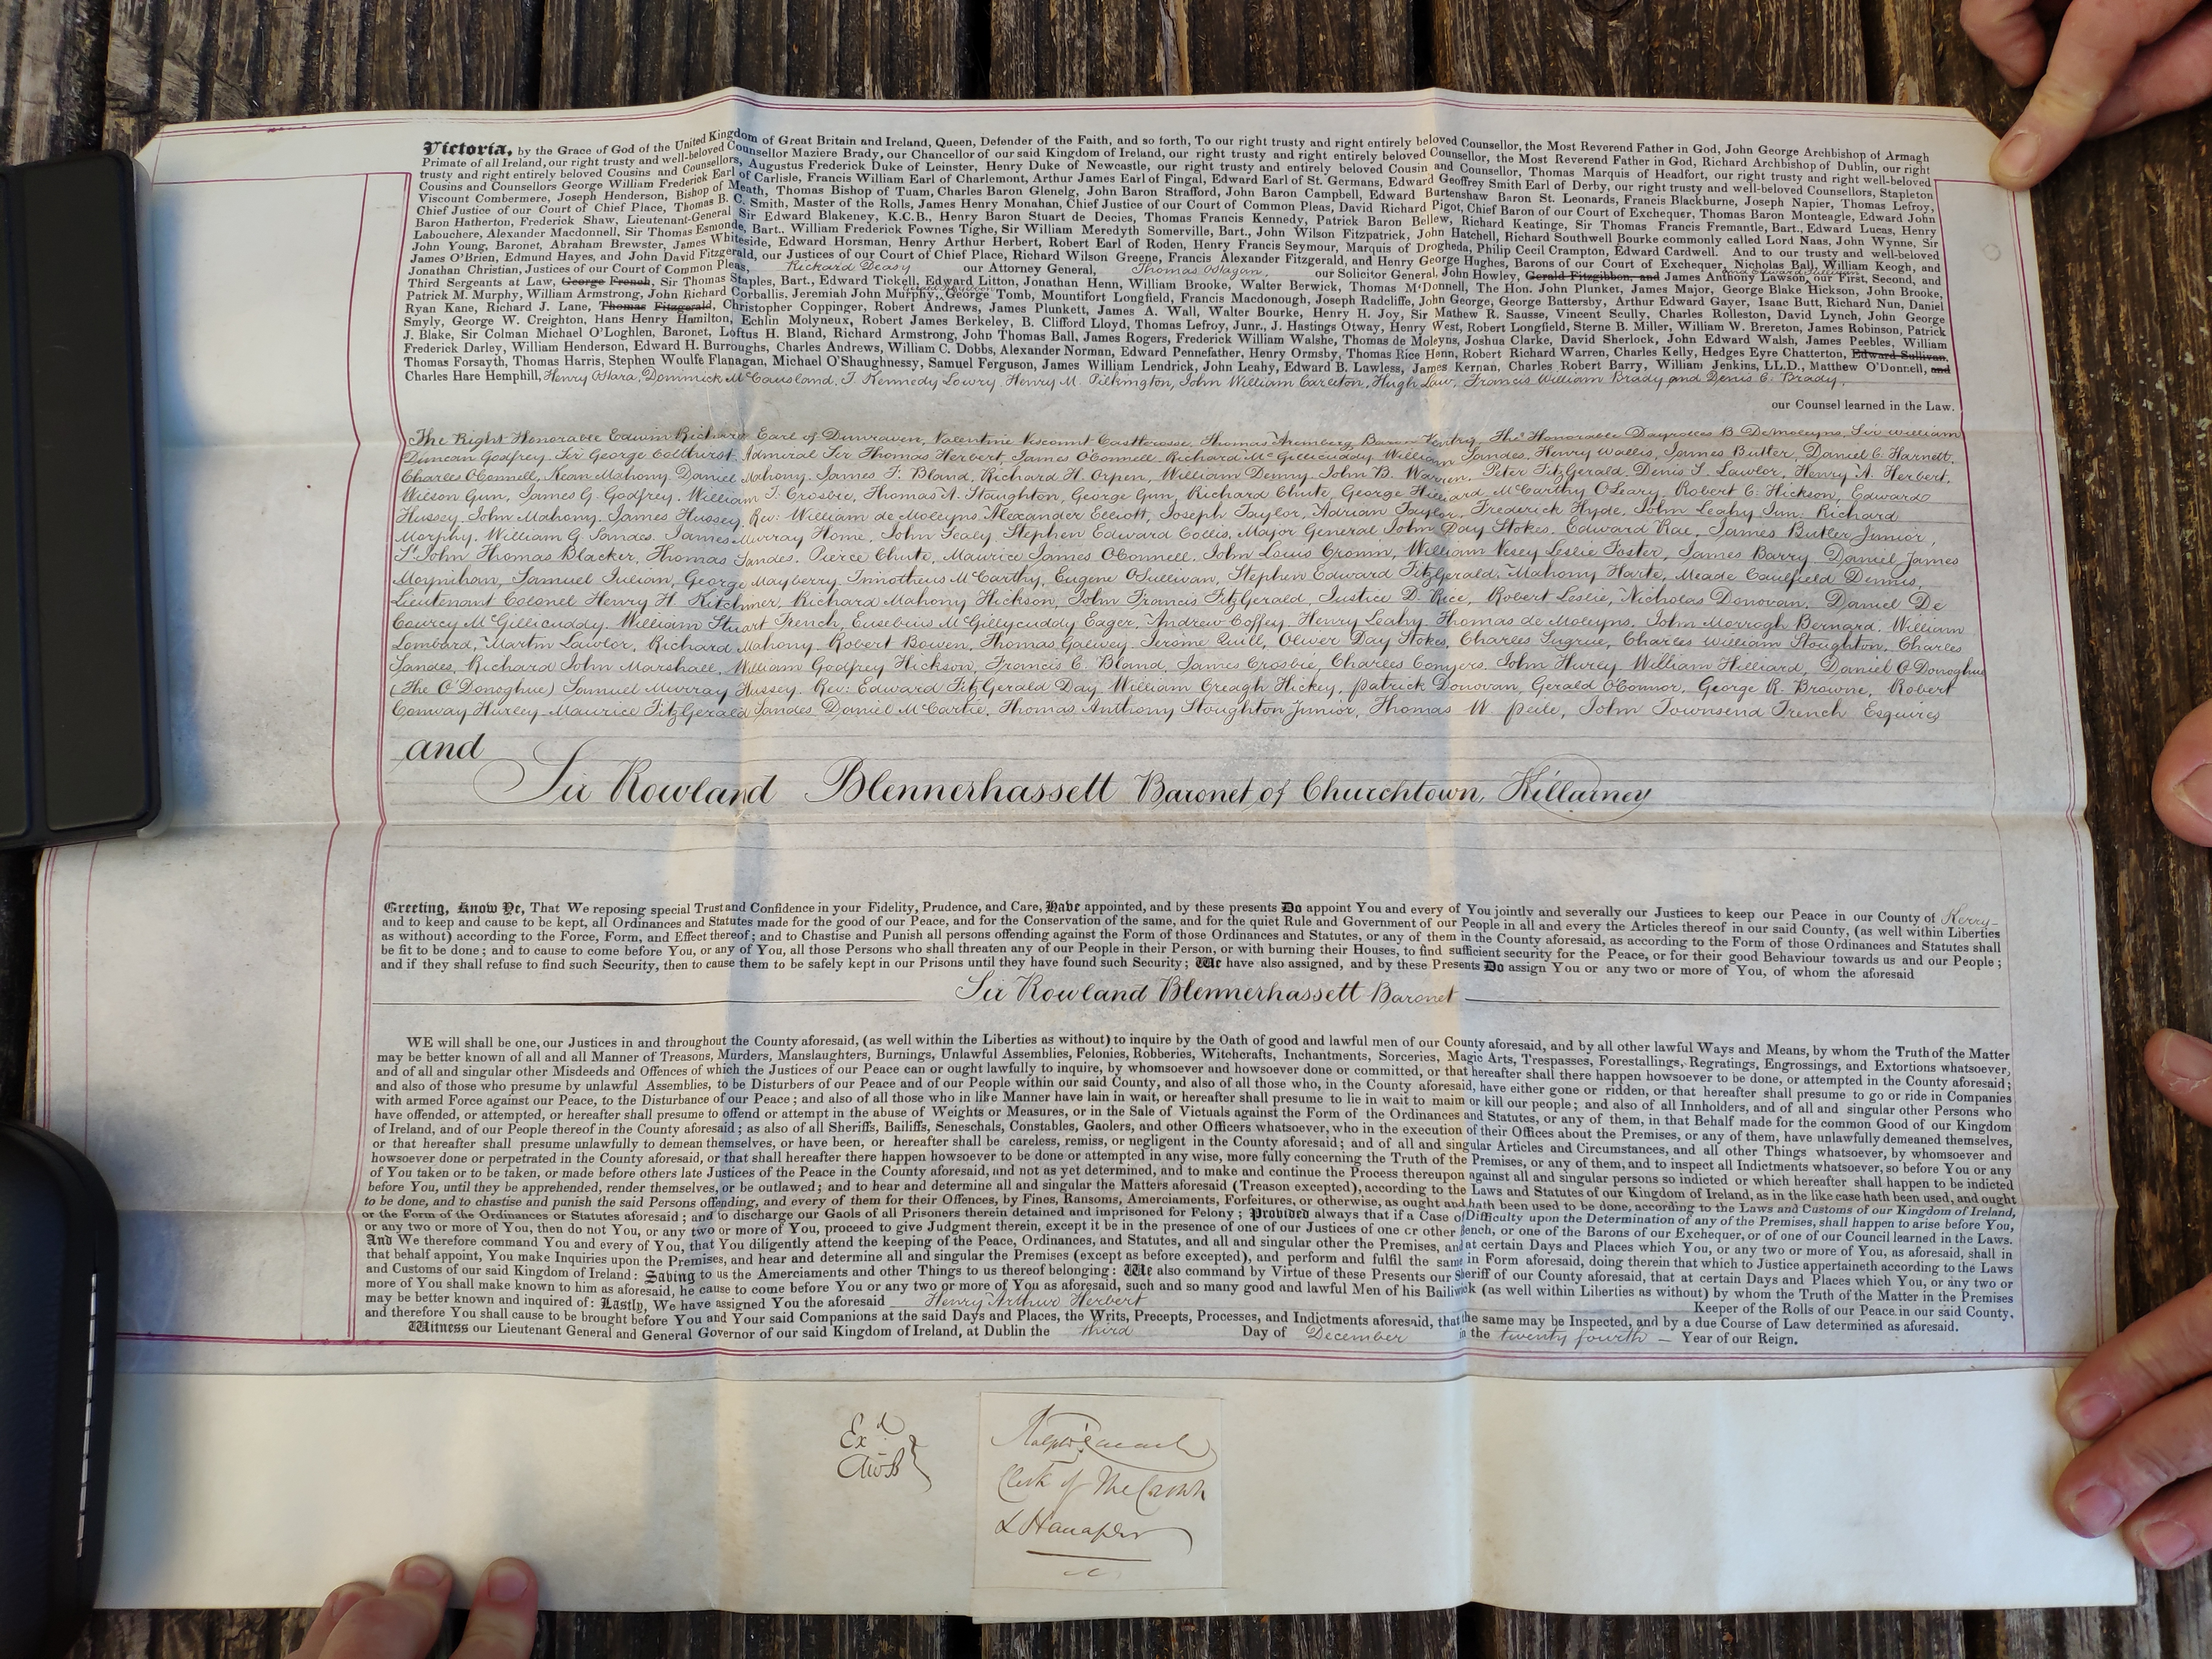 Victoria, by the Grace of God of the United Kingdom of Great Britain and Ireland, Queen, Defender of the Faith, and so forth, To our right trusty and right entirely beloved Counsellor, the Most Reverend Father in God, John George Archbishop of Armagh
Primate of all Ireland, our right trusty and well-beloved Counsellor Maziere Brady, our Chancellor of our said Kingdom of Ireland, our right trusty and right entirely beloved Counsellor, the Most Reverend Father in God, Richard Archbishop of Dublin, our right
trusty and right entirely beloved Cousins and Counsellors, Augustus Frederick Duke of Leinster, Henry Duke of Newcastle, our right trusty and entirely beloved Cousin and Counsellor, Thomas Marquis of Headfort, our right trusty and right well-beloved
Cousins and Counsellors George William Frederick Earl of Carlisle, Francis William Earl of Charlemont, Arthur James Earl of Fingal, Edward Earl of St. Germans, Edward Geoffrey Smith Earl of Derby, our right trusty and well-beloved Counsellors, Stapleton
Viscount Combermere, Joseph Henderson, Bishop of Meath, Thomas Bishop of Tuam, Charles Baron Glenelg, John Baron Strafford, John Baron Campbell, Edward Burtenshaw Baron St. Leonards, Francis Blackburne, Joseph Napier, Thomas Lefroy,
Chief Justice of our Court of Chief Place, Thomas B. C. Smith, Master of the Rolls, James Henry Monahan, Chief Justice of our Court of Common Pleas, David Richard Pigot, Chief Baron of our Court of Exchequer, Thomas Baron Monteagle, Edward John
Baron Hatherton, Frederick Shaw, Lieutenant-General Sir Edward Blakeney, K.C.B., Henry Baron Stuart de Decies, Thomas Francis Kennedy, Patrick Baron Bellew, Richard Keatinge, Sir Thomas Francis Fremantle, Bart., Edward Lucas, Henry
Labouchere, Alexander Macdonnell, Sir Thomas Esmonde, Bart., William Frederick Fownes Tighe, Sir William Meredyth Somerville, Bart., John Wilson Fitzpatrick, John Hatchell, Richard Southwell Bourke commonly called Lord Naas, John Wynne, Sir
John Young, Baronet, Abraham Brewster, James Whiteside, Edward Horsman, Henry Arthur Herbert, Robert Earl of Roden, Henry Francis Seymour, Marquis of Drogheda, Philip Cecil Crampton, Edward Cardwell. And to our trusty and well-beloved
James O'Brien, Edmund Hayes, and John David Fitzgerald, our Justices of our Court of Chief Place, Richard Wilson Greene, Francis Alexander Fitzgerald, and Henry George Hughes, Barons of our Court of Exchequer, Nicholas Ball, William Keogh, and
Jonathan Christian, Justices of our Court of Common Pleas, Rickard Deasy our Attorney General, Thomas O'Hagan, our Solicitor General, John Howley, Gerald Fitzgibbon, and James Anthony Lawson, our First, Second, and
Third Sergeants at Law, George French, Sir Thomas Staples, Bart., Edward Tickell, Edward Litton, Jonathan Henn, William Brooke, Walter Berwick, Thomas McDonnell, The Hon. John Plunket, James Major, George Blake Hickson, John Brooke,
Patrick M. Murphy, William Armstrong, John Richard Corballis, Jeremiah John Murphy, George Tomb, Mountifort Longfield, Francis Macdonough, Joseph Radcliffe, John George, George Battersby, Arthur Edward Gayer, Isaac Butt, Richard Nun, Daniel
Ryan Kane, Richard J. Lane, Thomas Fitzgerald, Christopher Coppinger, Robert Andrews, James Plunkett, James A. Wall, Walter Bourke, Henry H. Joy, Sir Mathew R. Sausse, Vincent Scully, Charles Rolleston, David Lynch, John George
Smyly, George W. Creighton, Hans Henry Hamilton, Echlin Molyneux, Robert James Berkeley, B. Clifford Lloyd, Thomas Lefroy, Junr., J. Hastings Otway, Henry West, Robert Longfield, Sterne B. Miller, William W. Brereton, James Robinson, Patrick
J. Blake, Sir Colman Michael O'Loghlen, Baronet, Loftus H. Bland, Richard Armstrong, John Thomas Ball, James Rogers, Frederick William Walshe, Thomas de Moleyns, Joshua Clarke, David Sherlock, John Edward Walsh, James Peebles, William
Frederick Darley, William Henderson, Edward H. Burroughs, Charles Andrews, William C. Dobbs, Alexander Norman, Edward Pennefather, Henry Ormsby, Thomas Rice Henn, Robert Richard Warren, Charles Kelly, Hedges Eyre Chatterton, Edward Sullivan,
Thomas Forsayth, Thomas Harris, Stephen Woulfe Flanagan, Michael O'Shaughnessy, Samuel Ferguson, James William Lendrick, John Leahy, Edward B. Lawless, James Kernan, Charles Robert Barry, William Jenkins, LL.D., Matthew O'Donnell, and
Charles Hare Hemphill, Henry O'Hara, Dominick McCausland, T. Kennedy Lowry, Henry M. Pilkington, John William Carleton, Hugh Law, Francis William Brady and Denis C. Brady,
our Counsel learned in the Law.
The Right Honorable Edwin Richard Earl of Dunraven, Valentine Viscount Castlerosse, Thomas Aremberg Baron Ventry, The Honorable Dayrolles B DeMoleyns, Sir William
Duncan Godfrey, Sir George Colthurst, Admiral Sir Thomas Herbert, James O'Connell, Richard McGillicuddy, William Sandes, Henry Wallis, James Butler, Daniel C. Harnett,
Charles O'Connell, Kean Mahony, Daniel Mahony, James F. Bland, Richard H. Orpen, William Denny, John B. Warren, Peter FitzGerald, Denis S. Lawlor, Henry A. Herbert,
Wilson Gun, James G. Godfrey, William T. Crosbie, Thomas A. Stoughton, George Gun, Richard Chute, George Hilliard, McCarthy O'Leary, Robert C. Hickson, Edward
Hussey, John Mahony, James Hussey, Rev: William de Moleyns, Alexander Elliott, Joseph Taylor, Adrian Taylor, Frederick Hyde, John Leahy Jun: Richard
Morphy, William G. Sandes, James Murray Home, John Sealy, Stephen Edward Collis, Major General John Day Stokes, Edward Rae, James Butler Junior,
St John Thomas Blacker, Thomas Sandes, Pierce Chute, Maurice James O'Connell, John Louis Cronin, William Vesey Leslie Foster, James Barry, Daniel James
Moynihan, Samuel Julian, George Mayberry, Timotheus McCarthy, Eugene O'Sullivan, Stephen Edward FitzGerald, Mahony Harte, Meade Caulfield Dennis,
Lieutenant Colonel Henry H. Kitchener, Richard Mahony Hickson, John Francis FitzGerald, Justice D. Rice, Robert Leslie, Nicholas Donovan, Daniel De
Courcy McGillicuddy, William Stuart Trench, Eusebius McGillycuddy Eager, Andrew Coffey, Henry Leahy, Thomas de Moleyns, John Morrogh Bernard, William
Lombard, Martin Lawlor, Richard Mahony, Robert Bowen, Thomas Galwey, Jerome Quill, Oliver Day Stokes, Charles Sugrue, Charles William Stoughton, Charles
Sandes, Richard John Marshall, William Godfrey Hickson, Francis C. Bland, James Crosbie, Charles Conyers, John Hurly, William Hilliard, Daniel O'Donoghue
(The O'Donoghue) Samuel Murray Hussey, Rev: Edward FitzGerald Day, William Creagh Hickey, Patrick Donovan, Gerald O'Connor, George R. Browne, Robert
Conway Hurley, Maurice FitzGerald Sandes, Daniel McCartie, Thomas Anthony Stoughton Junior, Thomas W. Peile, John Townsend Trench Esquires
and
Sir Rowland Blennerhassett Baronet of Churchtown, Killarney
Greeting, Know Ye, That We reposing special Trust and Confidence in your Fidelity, Prudence, and Care, Have appointed, and by these presents Do appoint You and every of You jointly and severally our Justices to keep our Peace in our County of Kerry
and to keep and cause to be kept, all Ordinances and Statutes made for the good of our Peace, and for the Conservation of the same, and for the quiet Rule and Government of our People in all and every the Articles thereof in our said County, (as well within Liberties
as without) according to the Force, Form, and Effect thereof; and to Chastise and Punish all persons offending against the Form of those Ordinances and Statutes, or any of them in the County aforesaid, as according to the Form of those Ordinances and Statutes shall
be fit to be done; and to cause to come before You, or any of You, all those Persons who shall threaten any of our People in their Person, or with burning their Houses, to find sufficient security for the Peace, or for their good Behaviour towards us and our People;
and if they shall refuse to find such Security, then to cause them to be safely kept in our Prisons until they have found such Security; We have also assigned, and by these Presents Do assign You or any two or more of You, of whom the aforesaid
Sir Rowland Blennerhassett Baronet
WE will shall be one, our Justices in and throughout the County aforesaid, (as well within the Liberties as without) to inquire by the Oath of good and lawful men of our County aforesaid, and by all other lawful Ways and Means, by whom the Truth of the Matter
may be better known of all and all Manner of Treasons, Murders, Manslaughters, Burnings, Unlawful Assemblies, Felonies, Robberies, Witchcrafts, Inchantments, Sorceries, Magic Arts, Trespasses, Forestallings, Regratings, Engrossings, and Extortions whatsoever,
and of all and singular other Misdeeds and Offences of which the Justices of our Peace can or ought lawfully to inquire, by whomsoever and howsoever done or committed, or that hereafter shall there happen howsoever to be done, or attempted in the County aforesaid;
and also of those who presume by unlawful Assemblies, to be Disturbers of our Peace and of our People within our said County, and also of all those who, in the County aforesaid, have either gone or ridden, or that hereafter shall presume to go or ride in Companies
with armed Force against our Peace, to the Disturbance of our Peace; and also of all those who in like Manner have lain in wait, or hereafter shall presume to lie in wait to maim or kill our people; and also of all Innholders, and of all and singular other Persons who
have offended, or attempted, or hereafter shall presume to offend or attempt in the abuse of Weights or Measures, or in the Sale of Victuals against the Form of the Ordinances and Statutes, or any of them, in that Behalf made for the common Good of our Kingdom
of Ireland, and of our People thereof in the County aforesaid; as also of all Sheriffs, Bailiffs, Seneschals, Constables, Gaolers, and other Officers whatsoever, who in the execution of their Offices about the Premises, or any of them, have unlawfully demeaned themselves,
or that hereafter shall presume unlawfully to demean themselves, or have been, or hereafter shall be careless, remiss, or negligent in the County aforesaid; and of all and singular Articles and Circumstances, and all other Things whatsoever, by whomsoever and
howsoever done or perpetrated in the County aforesaid, or that shall hereafter there happen howsoever to be done or attempted in any wise, more fully concerning the Truth of the Premises, or any of them, and to inspect all Indictments whatsoever, so before You or any
of You taken or to be taken, or made before others late Justices of the Peace in the County aforesaid, and not as yet determined, and to make and continue the Process thereupon against all and singular persons so indicted or which hereafter shall happen to be indicted
before You, until they be apprehended, render themselves, or be outlawed; and to hear and determine all and singular the Matters aforesaid (Treason excepted), according to the Laws and Statutes of our Kingdom of Ireland, as in the like case hath been used, and ought
to be done, and to chastise and punish the said Persons offending, and every of them for their Offences, by Fines, Ransoms, Amerciaments, Forfeitures, or otherwise, as ought and hath been used to be done, according to the Laws and Customs of our Kingdom of Ireland,
or the Form of the Ordinances or Statutes aforesaid; and to discharge our Gaols of all Prisoners therein detained and imprisoned for Felony; Provided always that if a Case of Difficulty upon the Determination of any of the Premises, shall happen to arise before You,
or any two or more of You, then do not You, or any two or more of You, proceed to give Judgment therein, except it be in the presence of one of our Justices of one or other Bench, or one of the Barons of our Exchequer, or of one of our Council learned in the Laws.
And We therefore command You and every of You, that You diligently attend the keeping of the Peace, Ordinances, and Statutes, and all and singular other the Premises, and at certain Days and Places which You, or any two or more of You, as aforesaid, shall in
that behalf appoint, You make Inquiries upon the Premises, and hear and determine all and singular the Premises (except as before excepted), and perform and fulfil the same in Form aforesaid, doing therein that which to Justice appertaineth according to the Laws
and Customs of our said Kingdom of Ireland: Saving to us the Amerciaments and other Things to us thereof belonging: We also command by Virtue of these Presents our Sheriff of our County aforesaid, that at certain Days and Places which You, or any two or
more of You shall make known to him as aforesaid, he cause to come before You or any two or more of You as aforesaid, such and so many good and lawful Men of his Bailiwick (as well within Liberties as without) by whom the Truth of the Matter in the Premises
may be better known and inquired of: Lastly, We have assigned You the aforesaid Henry Arthur Herbert Keeper of the Rolls of our Peace in our said County,
and therefore You shall cause to be brought before You and Your said Companions at the said Days and Places, the Writs, Precepts, Processes, and Indictments aforesaid, that the same may be Inspected, and by a due Course of Law determined as aforesaid.
Witness our Lieutenant General and General Governor of our said Kingdom of Ireland, at Dublin the third Day of December in the twenty fourth Year of our Reign.
Exd
Ralph Cusack
Clerk of The Crown
& Hanaper